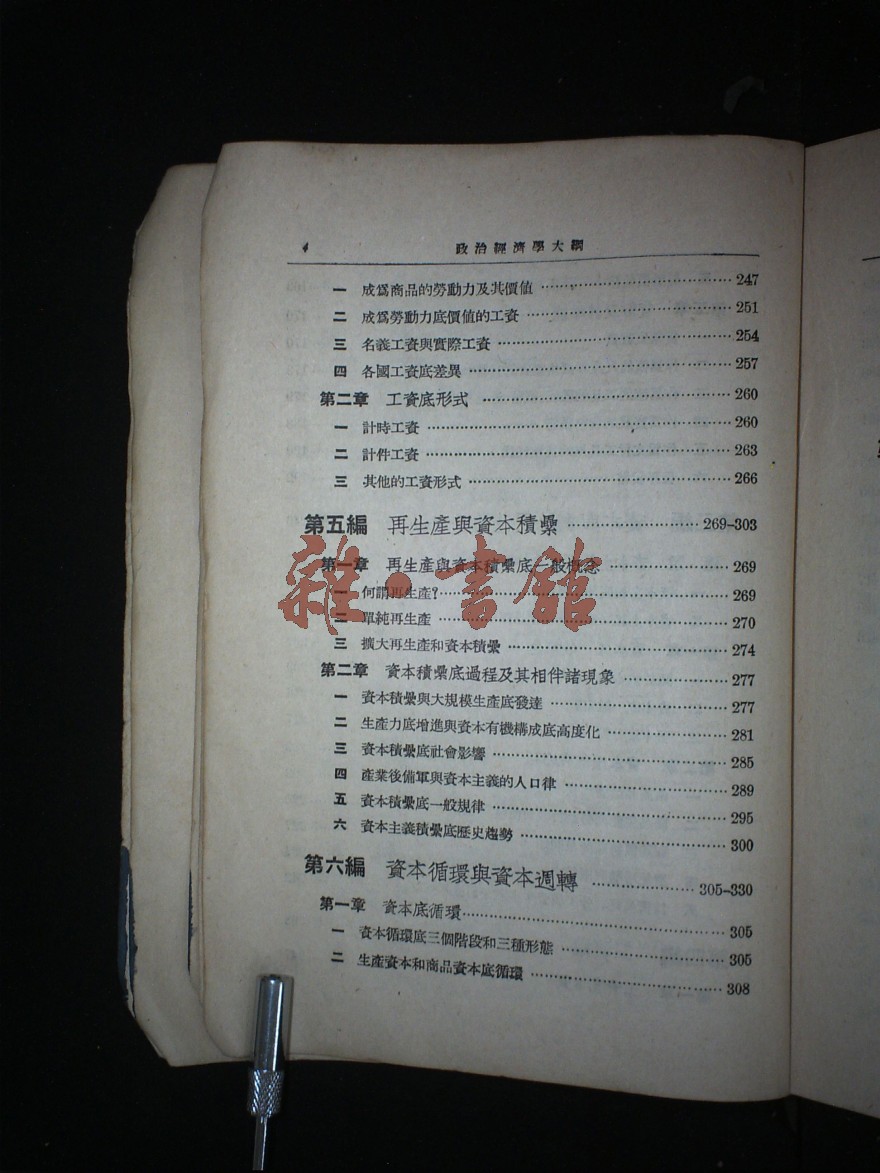 4 政治經濟學大綱
一 成爲商品的勞動力及其價値 247
二 成爲勞動力底價値的工資 251
三 名義工資與實際工資 254
四 各國工資底差異 257
第二章 工資底形式 260
一 計時工資 260
二 計件工資 263
三 其他的工資形式 266
第五編 再生產與資本積纍 269-303
第一章 再生產與資本積纍底一般概念 269
一 何謂再生產? 269
二 單純再生產 270
三 擴大再生產和資本積纍 274
第二章 資本積纍底過程及其相伴諸現象 277
一 資本積纍與大規模生產底發達 277
二 生產力底增進與資本有機構成底高度化 281
三 資本積纍底社會影響 285
四 產業後備軍與資本主義的人口律 289
五 資本積纍底一般規律 295
六 資本主義積纍底歷史趨勢 300
第六編 資本循環與資本週轉 305-330
第一章 資本底循環 305
一 資本循環底三個階段和三種形態 305
二 生產資本和商品資本底循環 308
雜·書館